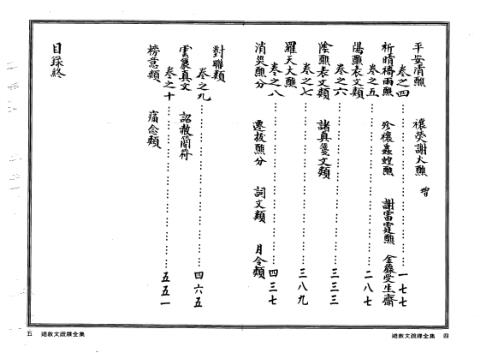 平安清醮　禳熒謝火醮
卷之四……一七七
祈晴禱雨醮　珍禳蟲蝗醮　謝雷霆醮　金籙受生齋
卷之五……二八七
陽醮表文類
卷之六……三三三
陰醮表文類　諸真篆文類
卷之七……三八九
羅天大醮
卷之八……四三七
消災醮分　遷拔醮分　詞文類　月令類
對聯類
卷之九……四六五
雲篆真文　詔敕簡符
卷之十……五五一
榜意類
目錄終
道教文疏牒全集　四
五　道教文疏牒全集